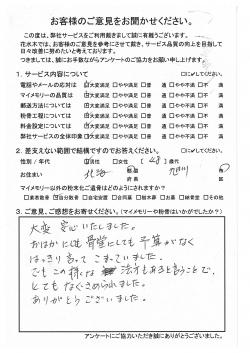 お客様のご意見をお聞かせください。
この度は、弊社サービスをご利用戴きまして誠に有難うございます。
花水木では、お客様のご意見を参考にさせて戴き、サービス品質の向上を目指して
日々改善に努めたいと考えております。
つきましては、誠にお手数ながらアンケートのご協力をお願い申し上げます。
1. サービス内容について
電話やメールの応対は 大変満足 やや満足 普通 やや不満 不満
マイメモリーの品質は 大変満足 やや満足 普通 やや不満 不満
郵送方法については 大変満足 やや満足 普通 やや不満 不満
粉骨工程については 大変満足 やや満足 普通 やや不満 不満
料金設定については 大変満足 やや満足 普通 やや不満 不満
弊社サービスの全体印象 大変満足 やや満足 普通 やや不満 不満
2. 差支えない範囲で結構ですのでお答えください。
性別 / 年代 男性 女性 ( ) 歳代
お住まい 北海
マイメモリー以外の粉末化ご遺骨はどのようにされますか?
3. ご意見、ご感想をお寄せください。(マイメモリーや粉骨はいかがでしたか?)
大変安心いたしました。
おはかにも骨堂にしても予算がなく
はっきり言って こまっていました。
でもこの様な 方もあると言うことで、
とてもなぐさめられました。
ありがとうございました。
アンケートにご協力いただき誠にありがとうございました。